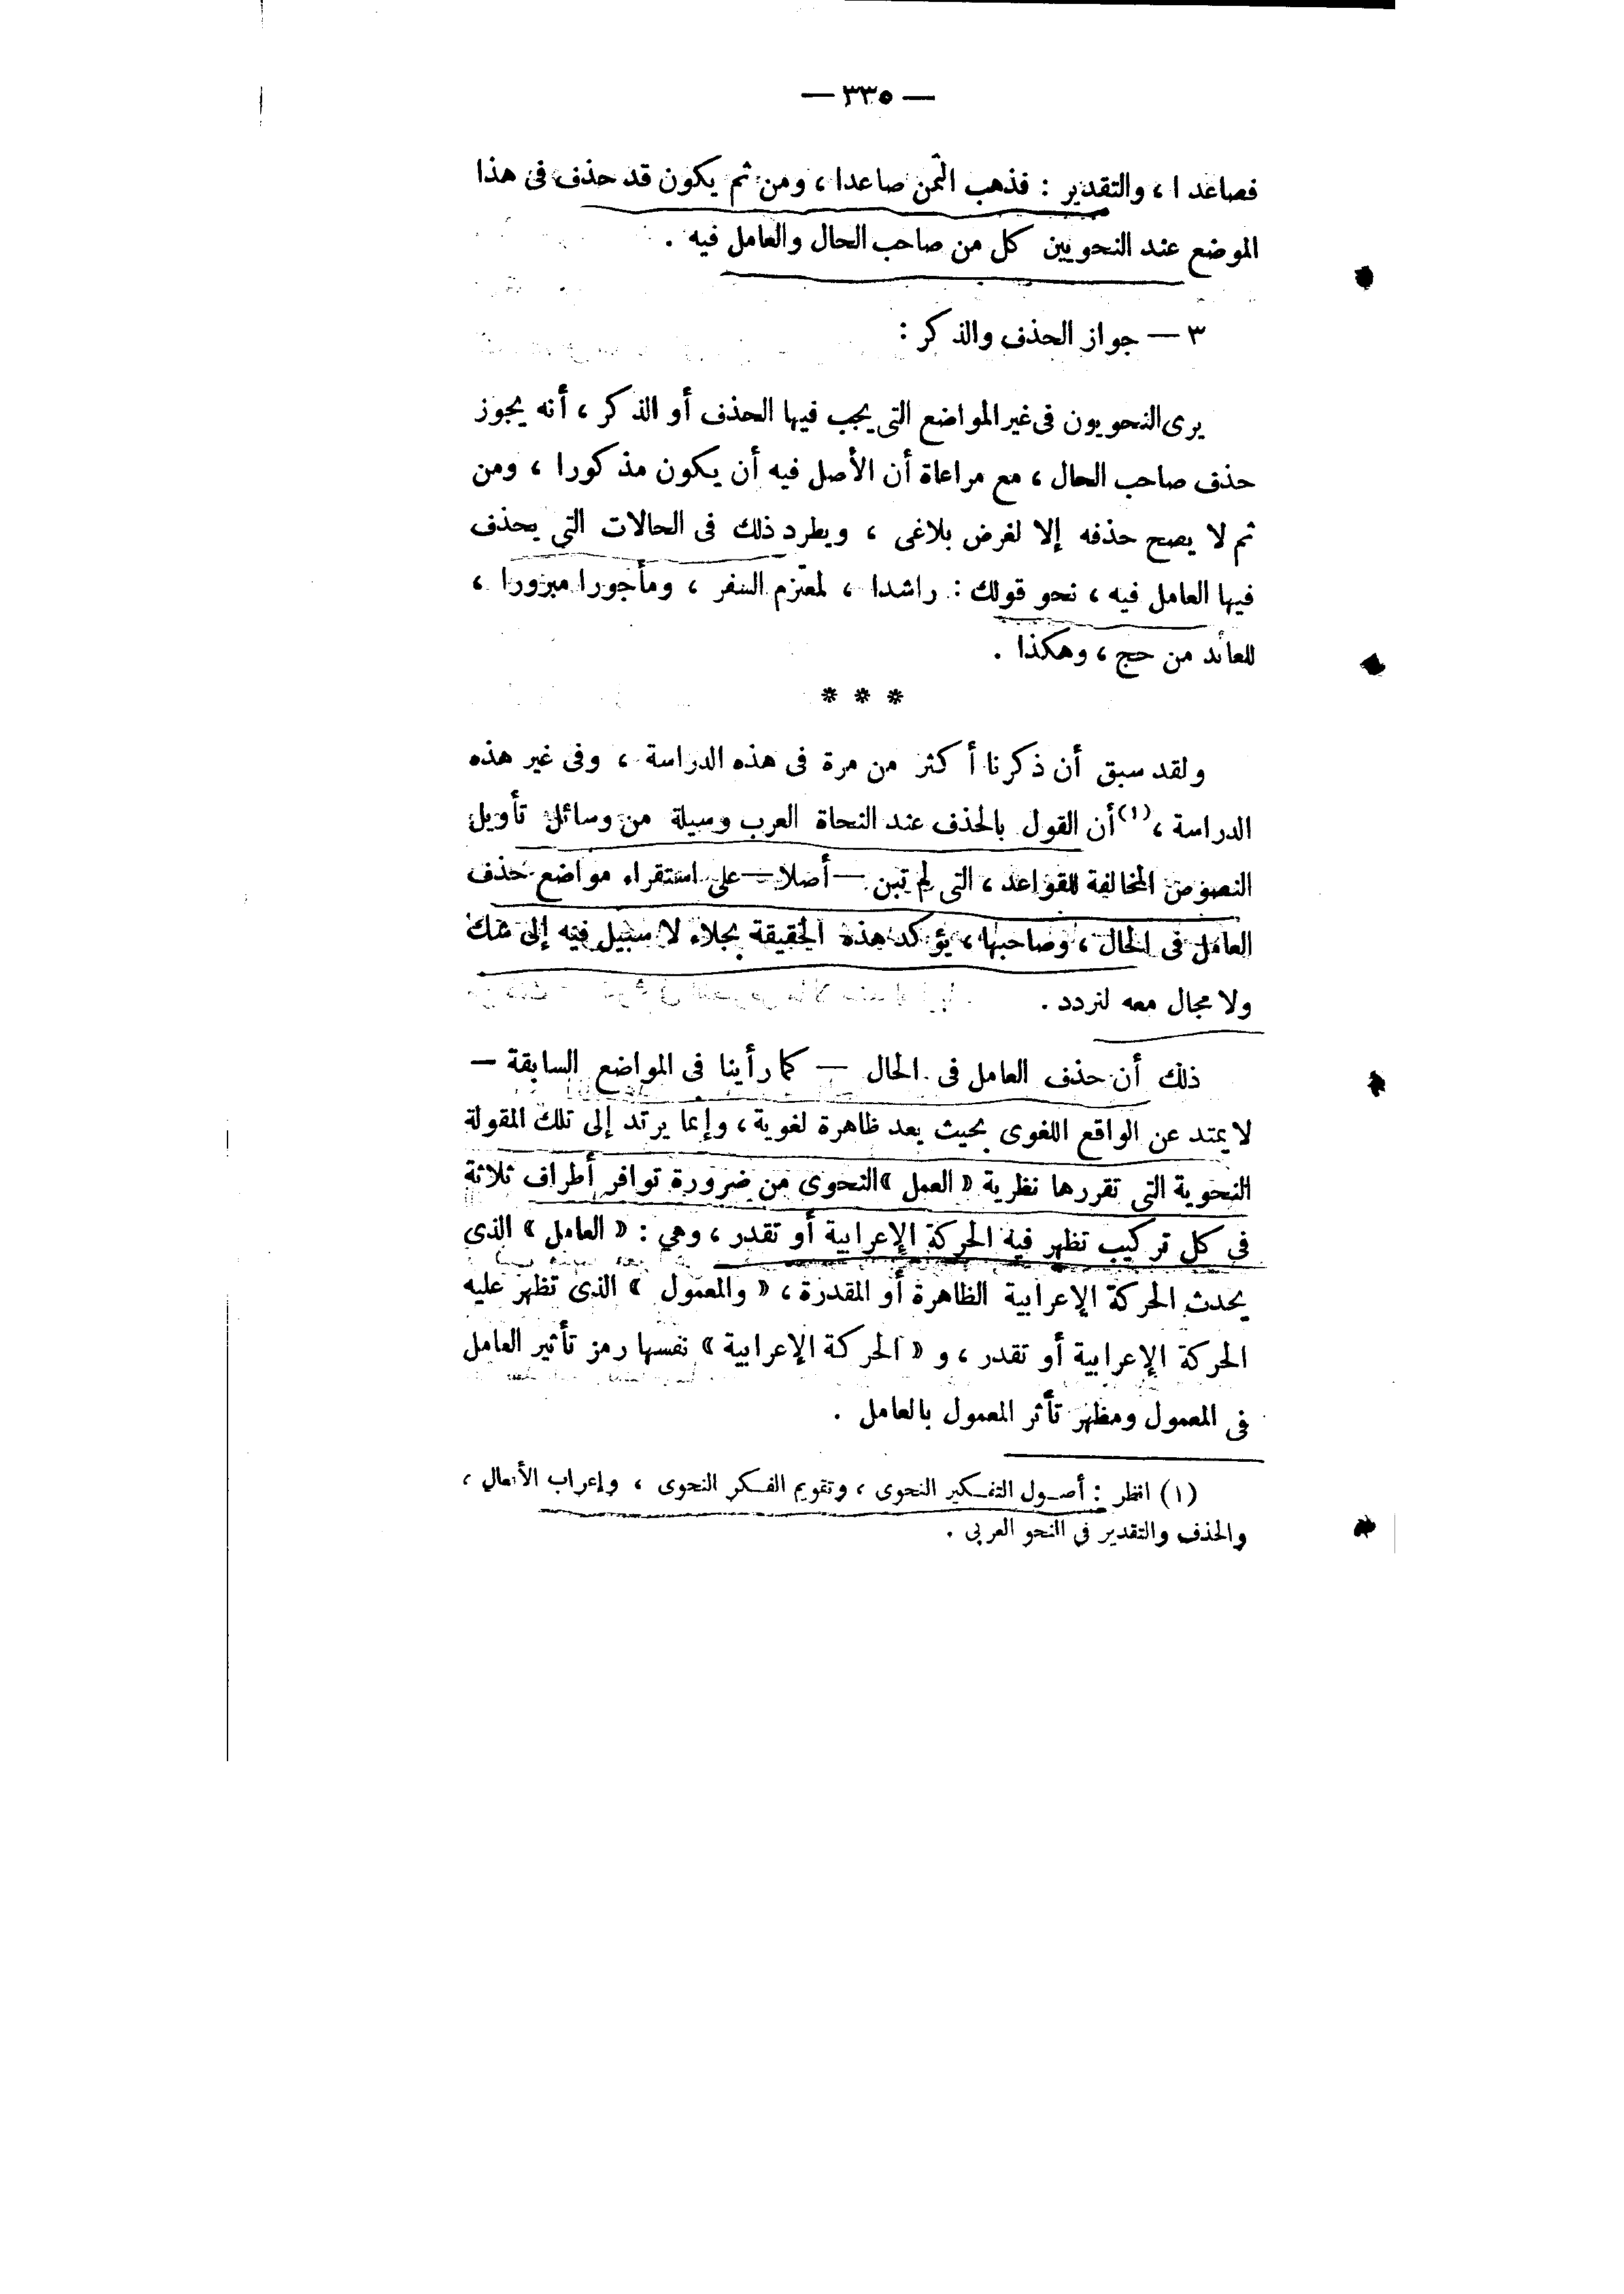 — ٣٣٥ —
فصاعدا ، والتقدير : فذهب الثمن صاعدا ، ومن ثم يكون قد حذف فى هذا
الموضع عند النحويين كل من صاحب الحال والعامل فيه .
٣ — جواز الحذف والذكر :
يرى النحويون فى غير المواضع التى يجب فيها الحذف أو الذكر ، أنه يجوز
حذف صاحب الحال ، مع مراعاة أن الأصل فيه أن يكون مذكورا ، ومن
ثم لا يصح حذفه إلا لغرض بلاغى ، ويطرد ذلك فى الحالات التى يحذف
فيها العامل فيه ، نحو قولك : راشدا ، لمعتزم السفر ، ومأجورا مبرورا ،
للعائد من حج ، وهكذا .
* * *
ولقد سبق أن ذكرنا أكثر من مرة فى هذه الدراسة ، وفى غير هذه
الدراسة ،(١) أن القول بالحذف عند النحاة العرب وسيلة من وسائل تأويل
النصوص المخالفة للقواعد ، التى لم تبن — أصلا — على استقراء مواضع حذف
العامل فى الحال ، وصاحبها ، يؤكد هذه الحقيقة بجلاء لا سبيل فيه إلى شك
ولا مجال معه لتردد .
ذلك أن حذف العامل فى الحال — كما رأينا فى المواضع السابقة —
لا يمتد عن الواقع اللغوى بحيث يعد ظاهرة لغوية ، وإنما يرتد إلى تلك المقولة
النحوية التى تقررها نظرية « العمل » النحوى من ضرورة توافر أطراف ثلاثة
فى كل تركيب تظهر فيه الحركة الإعرابية أو تقدر ، وهي : « العامل » الذى
يحدث الحركة الإعرابية الظاهرة أو المقدرة ، « والمعمول » الذى تظهر عليه
الحركة الإعرابية أو تقدر ، و « الحركة الإعرابية » نفسها رمز تأثير العامل
فى المعمول ومظهر تأثر المعمول بالعامل .
(١) انظر : أصول التفكير النحوى ، وتقويم الفكر النحوى ، وإعراب الأفعال ،
والحذف والتقدير في النحو العربى .